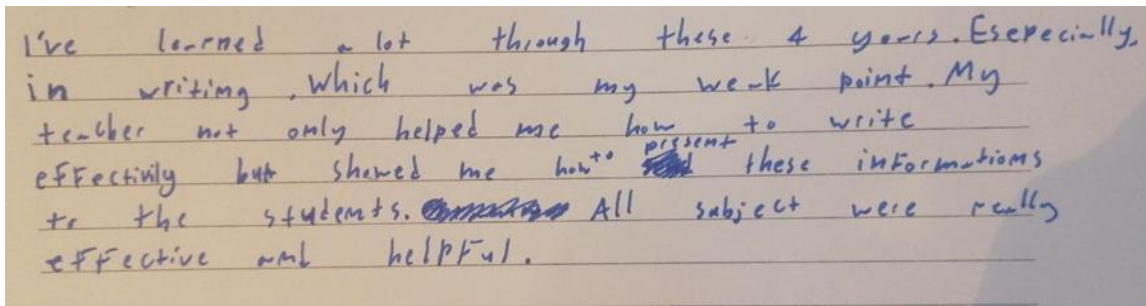 I've learned a lot through these 4 years. Esepecially,
in writing, Which was my weak point. My
teacher not only helped me how to write
effectivily but showed me how to present these informations
to the students. All subject were really
effective and helpful.